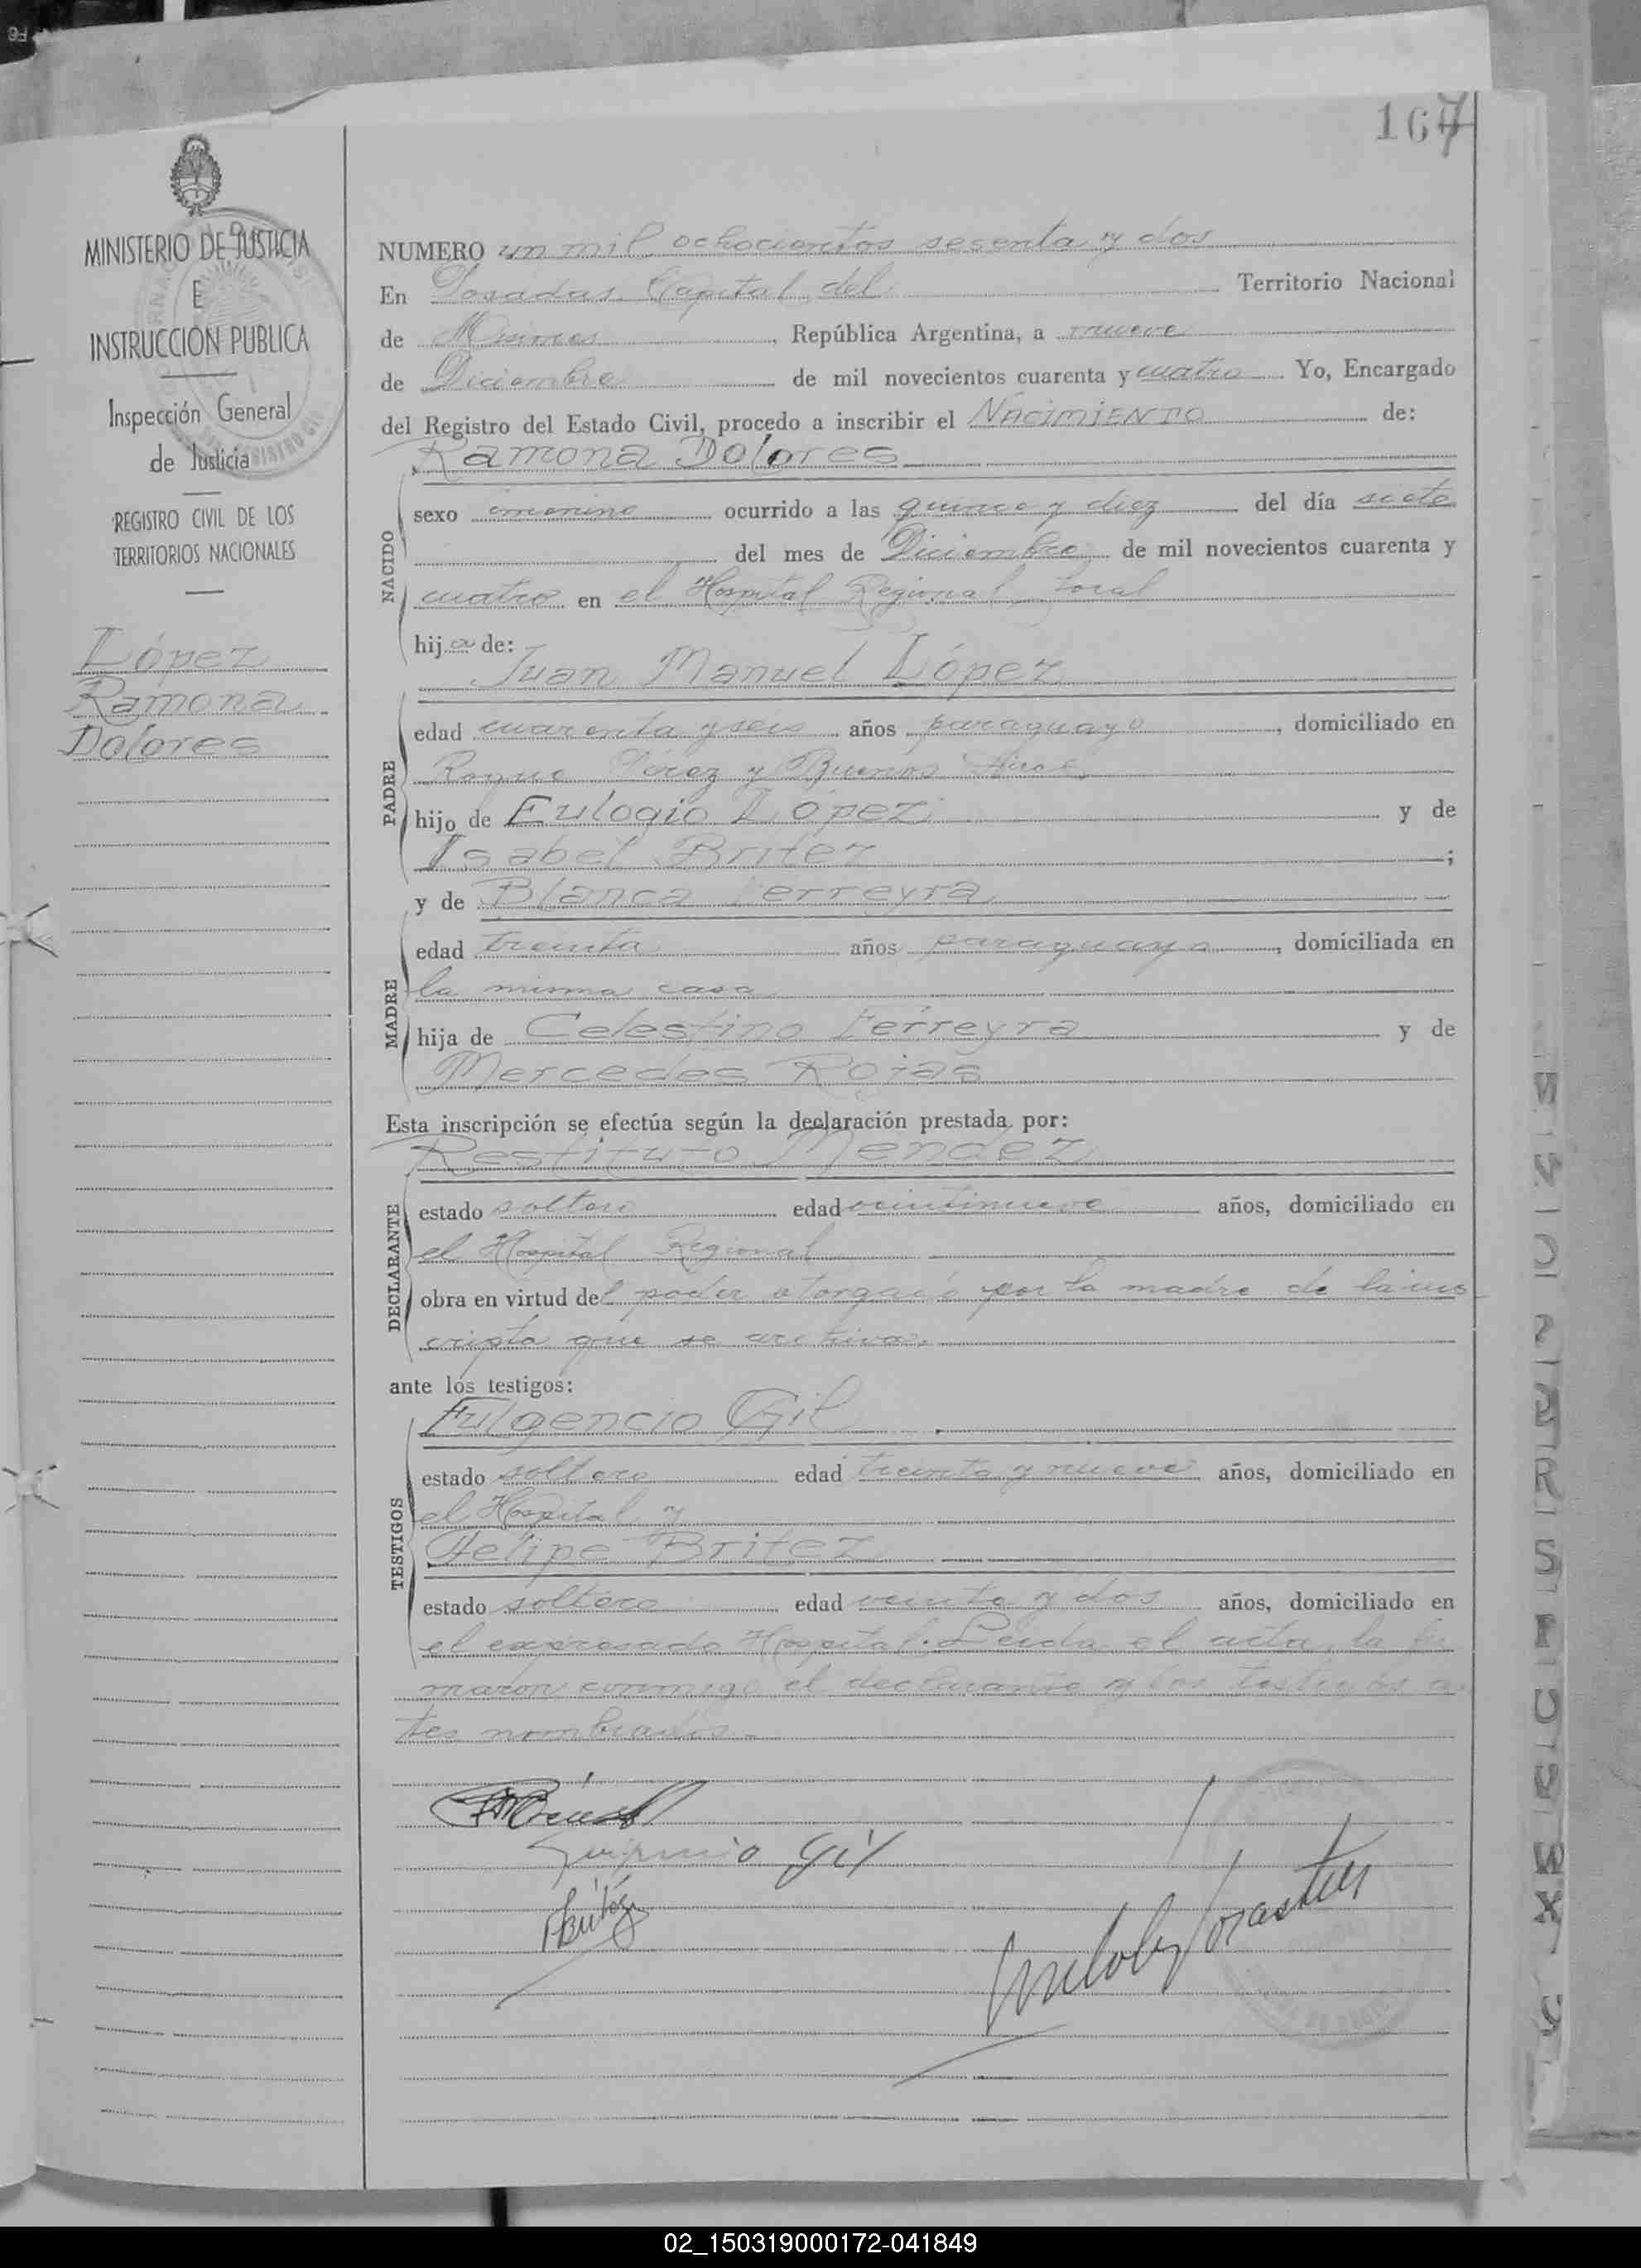 167
MINISTERIO DE JUSTICIA
E
INSTRUCCIÓN PUBLICA
Inspección General
de Justicia
REGISTRO CIVIL DE LOS
TERRITORIOS NACIONALES
López
Ramona
Dolores
NUMERO un mil ochocientos sesenta y dos
En Posadas Capital del Territorio Nacional
de Misiones, República Argentina, a nueve
de Diciembre de mil novecientos cuarenta y cuatro Yo, Encargado
del Registro del Estado Civil, procedo a inscribir el NACIMIENTO de:
Ramona Dolores
NACIDO
sexo ocurrido a las quince y diez del día siete
del mes de Diciembre de mil novecientos cuarenta y
cuatro en el Hospital Regional local
hija de:
Juan Manuel López
PADRE
edad cuarenta y seis años paraguayo, domiciliado en
Roque Pérez y Buenos Aires
hijo de Eulogio López y de
Isabel Britez;
y de Blanca Ferreyra
MADRE
edad treinta años paraguaya, domiciliada en
la misma casa
hija de Celestino Ferreyra y de
Mercedes Rojas
Esta inscripción se efectúa según la declaración prestada por:
Restituto Mendez
DECLARANTE
estado soltero edad veintinueve años, domiciliado en
el Hospital Regional
obra en virtud del poder otorgado por la madre de la ins
cripta que se archiva.
ante los testigos:
Fulgencio Gil
TESTIGOS
estado soltero edad treinta y nueve años, domiciliado en
el Hospital y
Felipe Britez
estado soltero edad veinte y dos años, domiciliado en
el expresado Hospital. Leida el acta, la fir
maron conmigo el declarante y los testigos an
tes nombrados.-
Gil
02_150319000172-041849